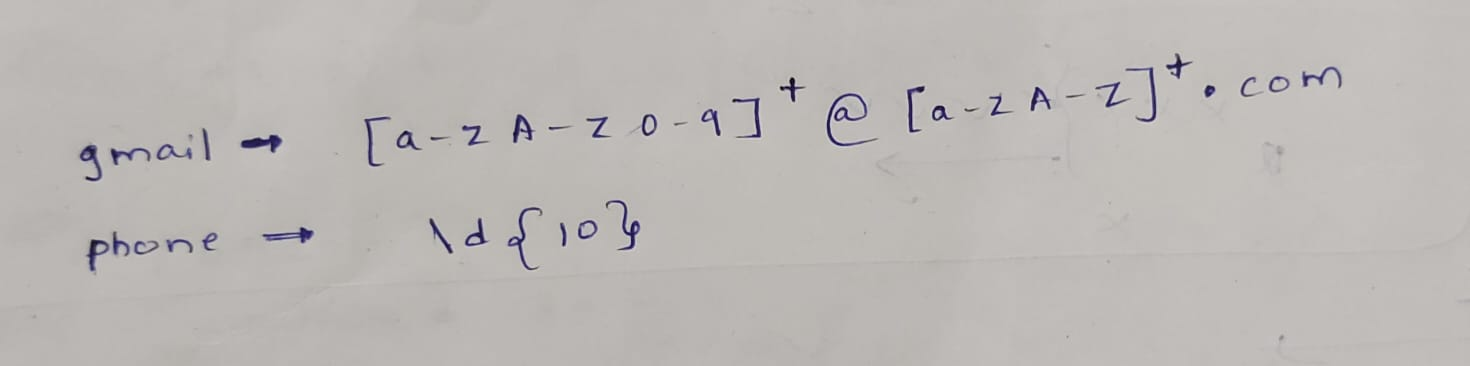 gmail → [a-zA-Z0-9]+@[a-zA-Z]+.com
phone → \d{10}